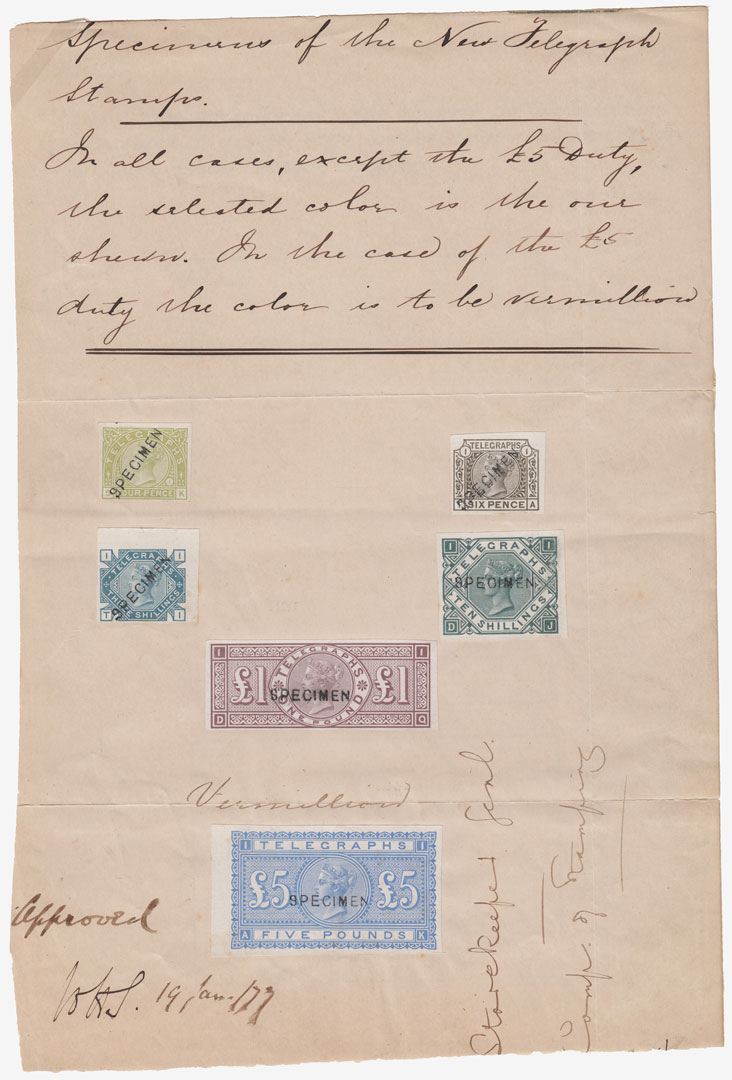 Specimens of the New Telegraph
Stamps.
In all cases, except the £5 Duty,
the selected color is the one
shewn. In the case of the £5
duty the color is to be vermillion
TELEGRAPHS
SPECIMEN
FOUR PENCE
K
I TELEGRAPHS I
SPECIMEN
SIX PENCE A
I TELEGRAPHS I
SPECIMEN
T THREE SHILLINGS I
I TELEGRAPHS I
SPECIMEN
D TEN SHILLINGS J
I TELEGRAPHS I
£1 SPECIMEN £1
D ONE POUND Q
Vermillion
I TELEGRAPHS I
£5 SPECIMEN £5
A FIVE POUNDS K
Approved
WHS. 19 Jan./77
Storekeeper Genl.
Comp. of Stamping